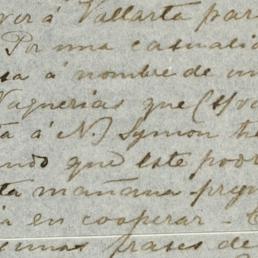 ver á Vallarta par
Por una casualid
sa á nombre de un
Vaquerias que (
ta á N.) Symon
ando que este pod
ta mañana pregu
en cooperar -
unas frases de